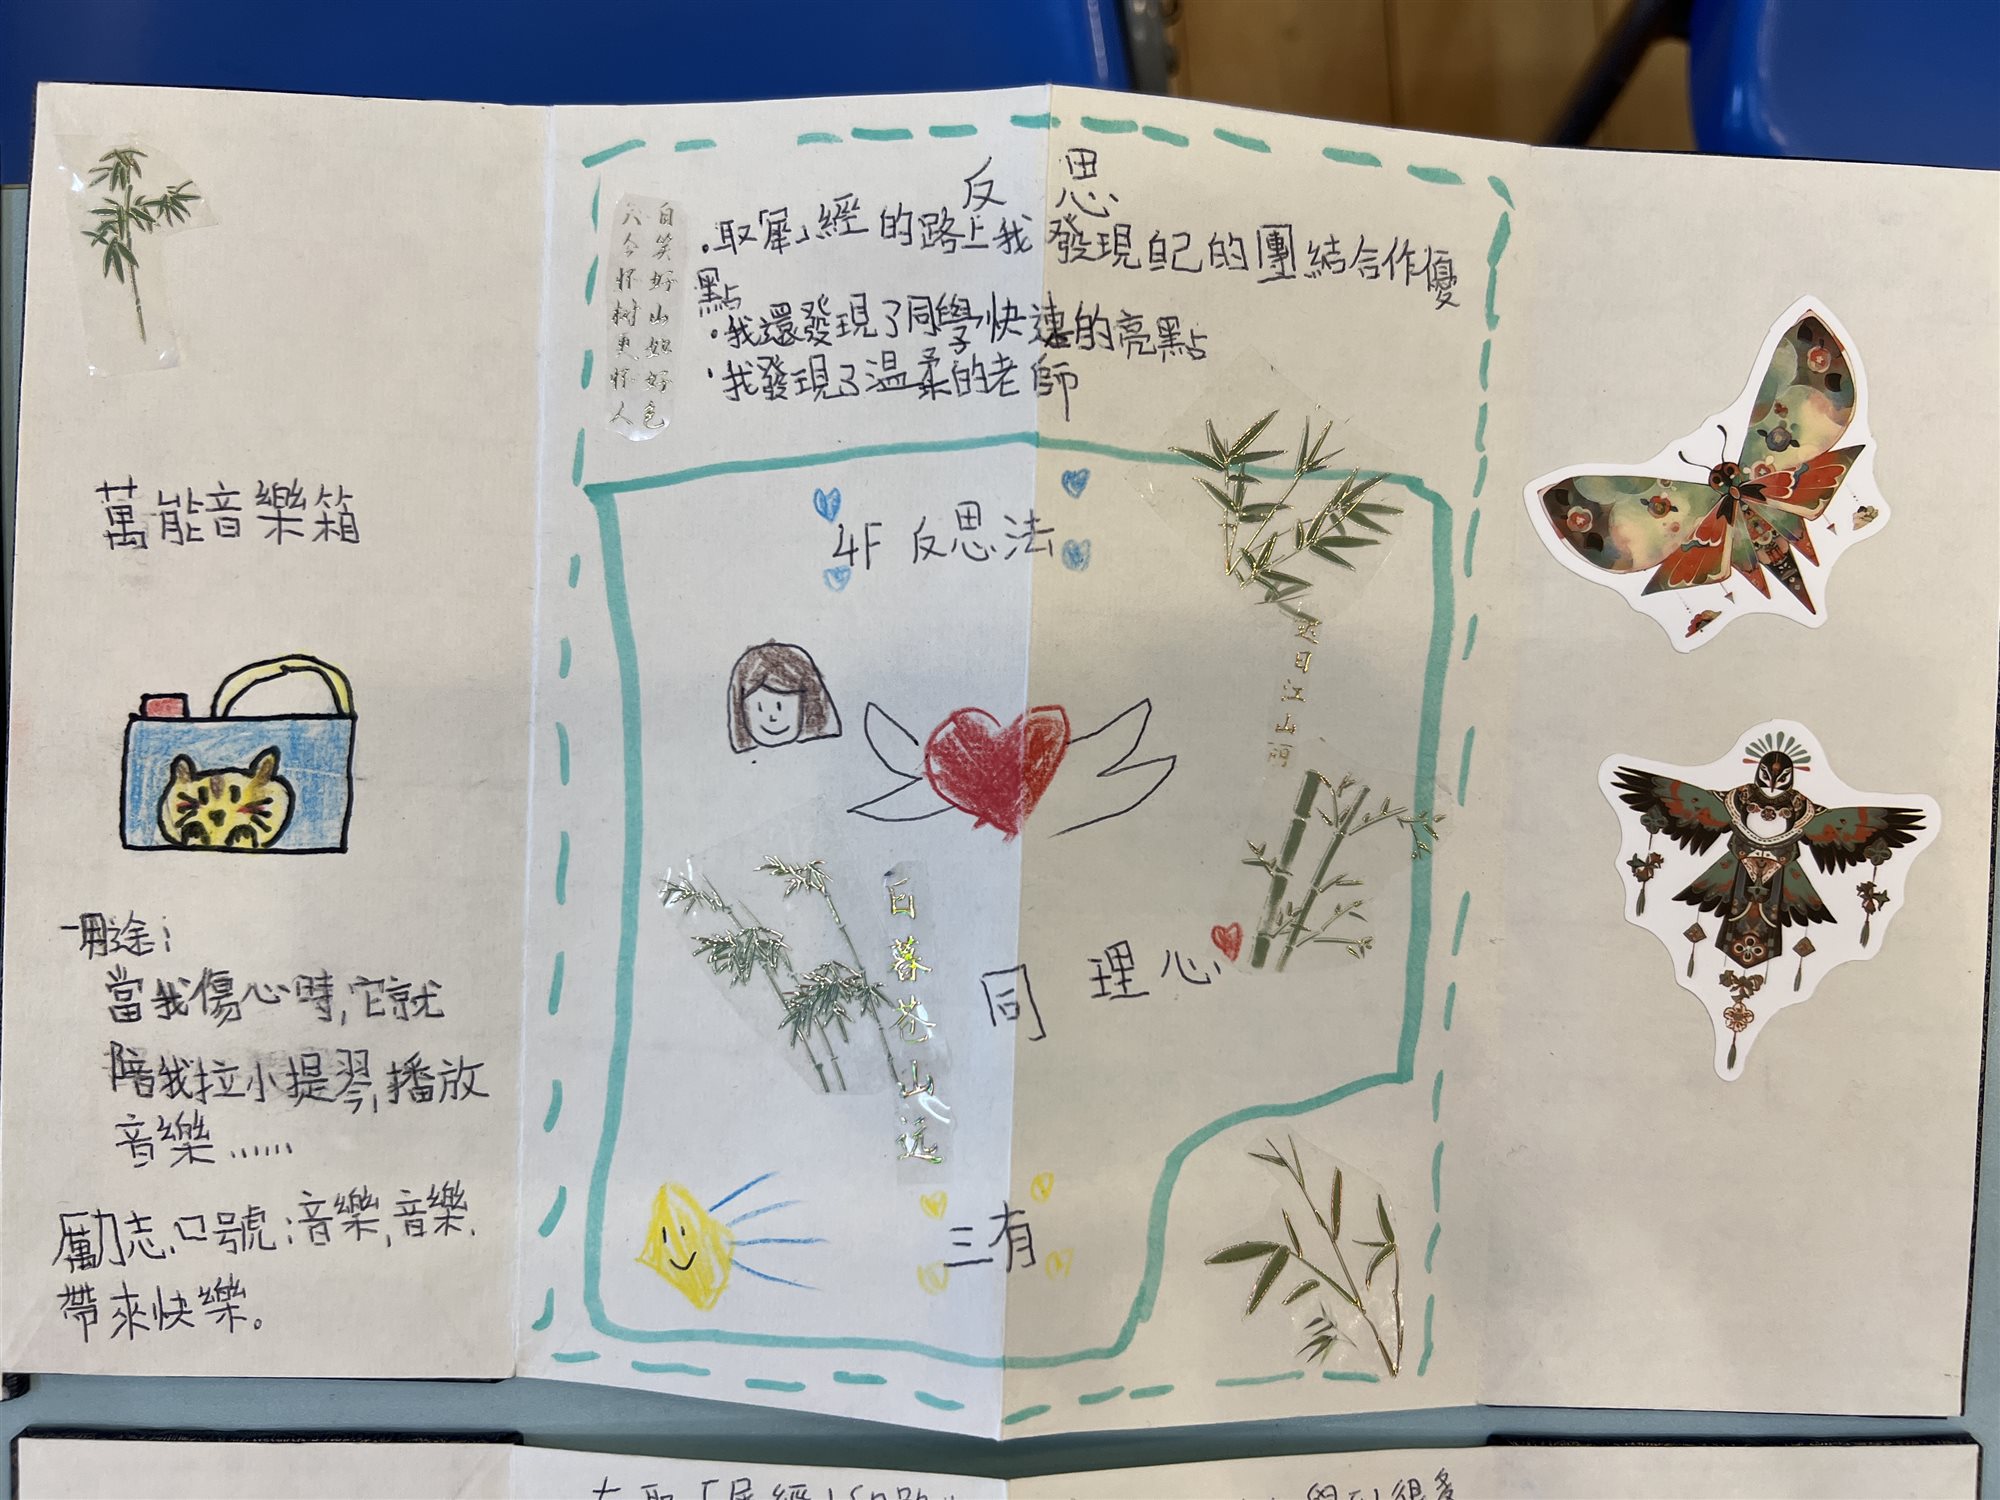 萬能音樂箱
用途：
當我傷心時，它就
陪我拉小提琴，播放
音樂……
勵志口號：音樂，音樂，
帶來快樂。
反思
·取「犀」經的路上我發現自己的團結合作優
點
·我還發現了同學快速的亮點
·我發現了温柔的老師
自笑好山如好色
今怀树更怀人
4F反思法
日江山
日暮苍山远
同理心
三有